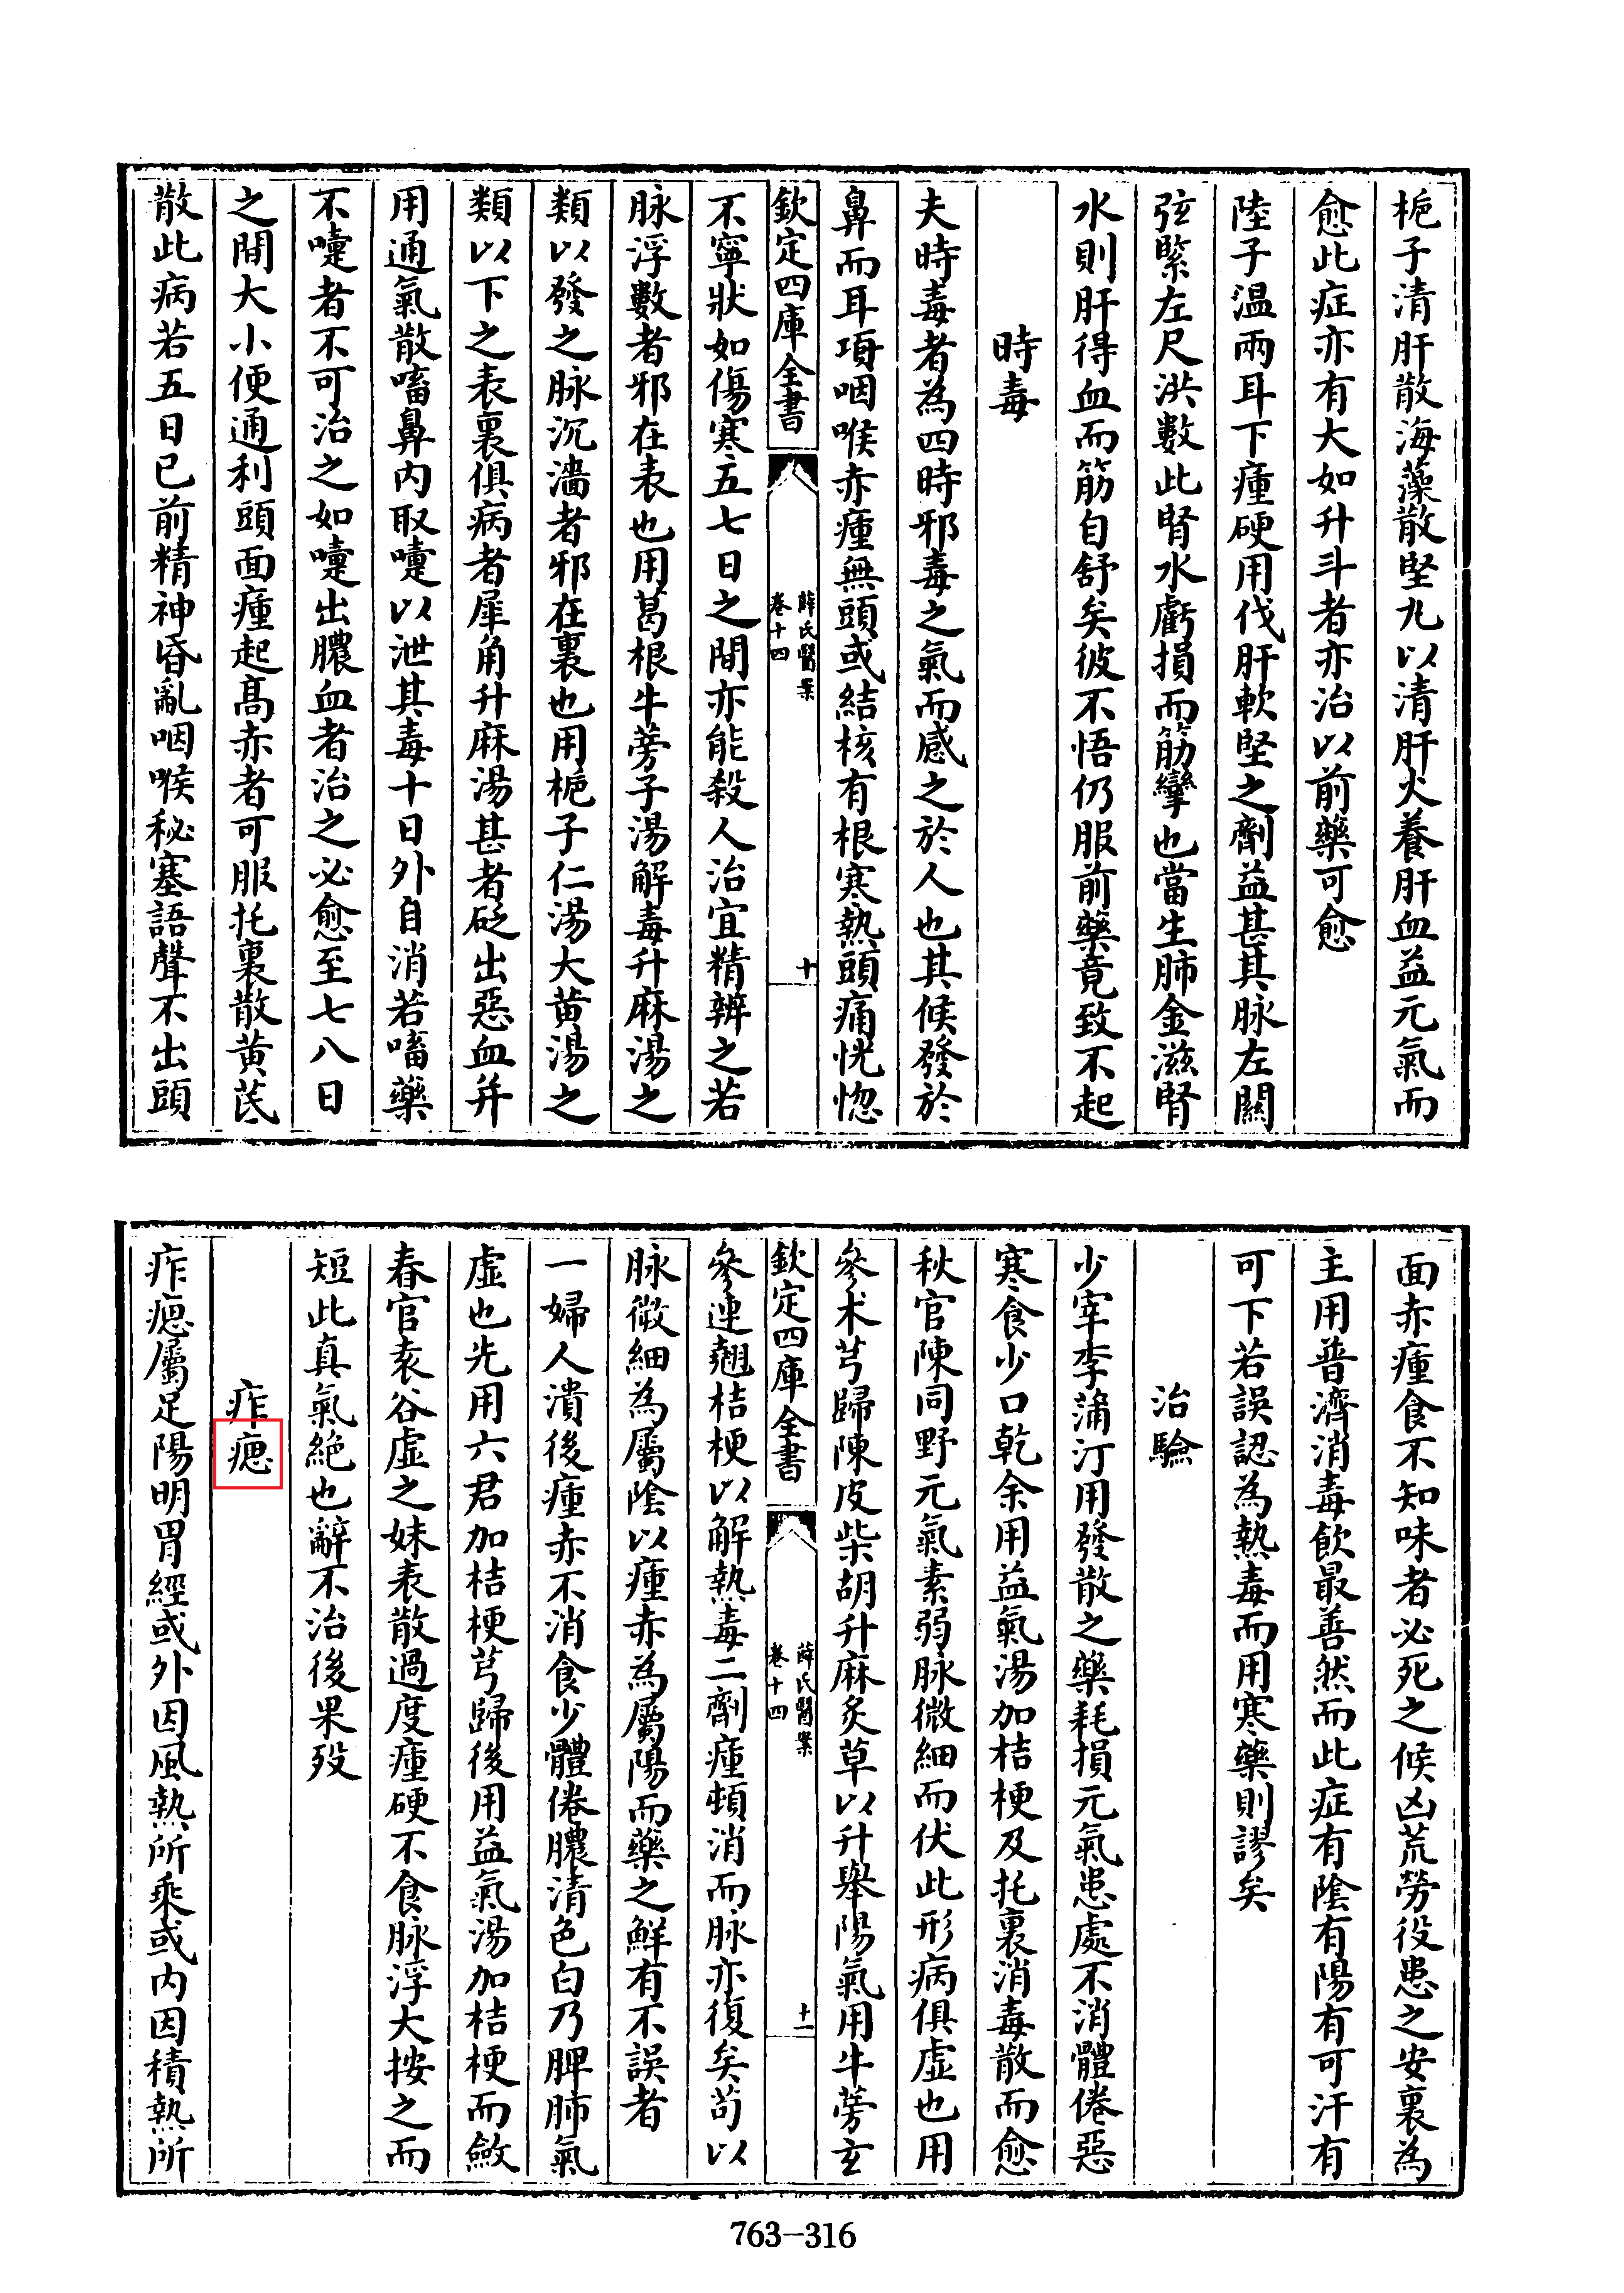 梔子清肝散海藻散堅丸以清肝火養肝血益元氣而
愈此症亦有大如升斗者亦治以前藥可愈
陸子温兩耳下瘇硬用伐肝軟堅之劑益甚其脉左關
弦緊左尺洪數此腎水虧損而筋攣也當生肺金滋腎
水則肝得血而筋自舒矣彼不悟仍服前藥竟致不起
時毒
夫時毒者為四時邪毒之氣而感之於人也其候發於
鼻而耳項咽喉赤瘇無頭或結核有根寒熱頭痛恍惚
欽定四庫全書
薛氏醫案
卷十四
十
不寧狀如傷寒五七日之間亦能殺人治宜精辨之若
脉浮數者邪在表也用葛根牛蒡子湯解毒升麻湯之
類以發之脉沉濇者邪在裏也用梔子仁湯大黄湯之
類以下之表裏俱病者犀角升麻湯甚者砭出惡血并
用通氣散㗜鼻内取嚏以泄其毒十日外自消若㗜藥
不嚏者不可治之如嚏出膿血者治之必愈至七八日
之間大小便通利頭面瘇起髙赤者可服托裏散黄芪
散此病若五日已前精神昏亂咽喉秘塞語聲不出頭
面赤瘇食不知味者必死之候凶荒勞役患之安裏為
主用普濟消毒飲最善然而此症有陰有陽有可汗有
可下若誤認為熱毒而用寒藥則謬矣
治驗
少宰李蒲汀用發散之藥耗損元氣患處不消體倦惡
寒食少口乾余用益氣湯加桔梗及托裏消毒散而愈
秋官陳同野元氣素弱脉微細而伏此形病俱虚也用
參术芎歸陳皮柴胡升麻炙草以升舉陽氣用牛蒡玄
欽定四庫全書
薛氏醫案
卷十四
十一
參連翹桔梗以解熱毒二劑瘇頓消而脉亦復矣苟以
脉微細為屬陰以瘇赤為屬陽而藥之鮮有不誤者
一婦人潰後瘇赤不消食少體倦膿清色白乃脾肺氣
虚也先用六君加桔梗芎歸後用益氣湯加桔梗而斂
春官袁谷虚之妹表散過度瘇硬不食脉浮大按之而
短此真氣絶也辭不治後果歿
痄㾀
痄㾀屬足陽明胃經或外因風熱所乘或内因積熱所